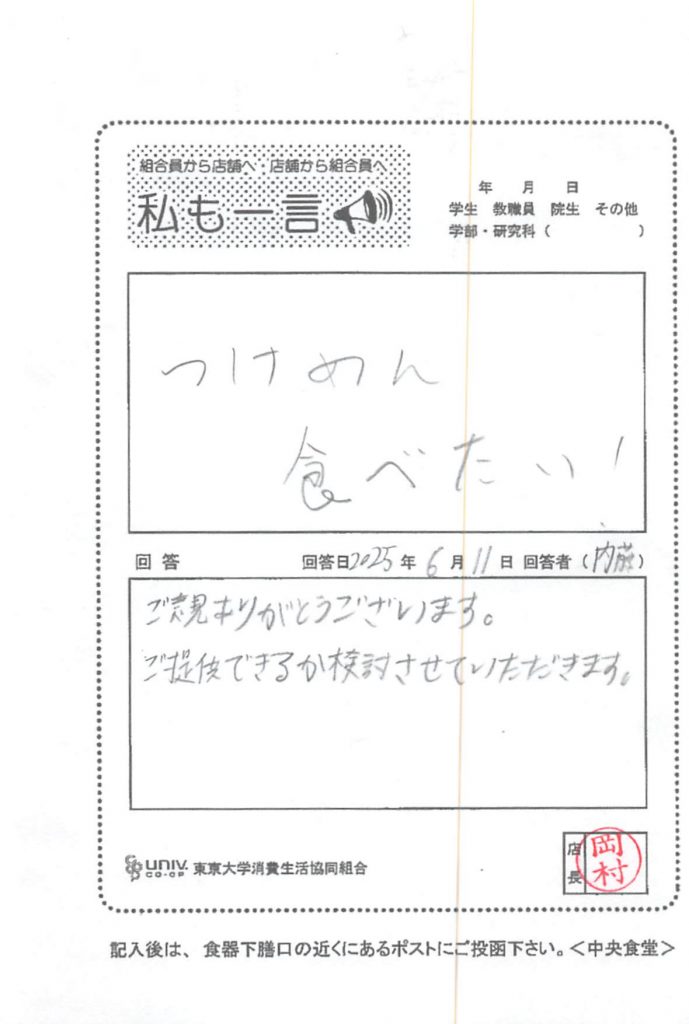 組合員から店舗へ・店舗から組合員へ
私も一言
年 月 日
学生 教職員 院生 その他
学部・研究科（ ）
つけめん
食べたい！
回答 回答日2025年6月11日 回答者（内藤）
ご意見ありがとうございます。
ご提供できるか検討させていただきます。
店長 岡村
UNIV. CO-OP 東京大学消費生活協同組合
記入後は、食器下膳口の近くにあるポストにご投函下さい。＜中央食堂＞